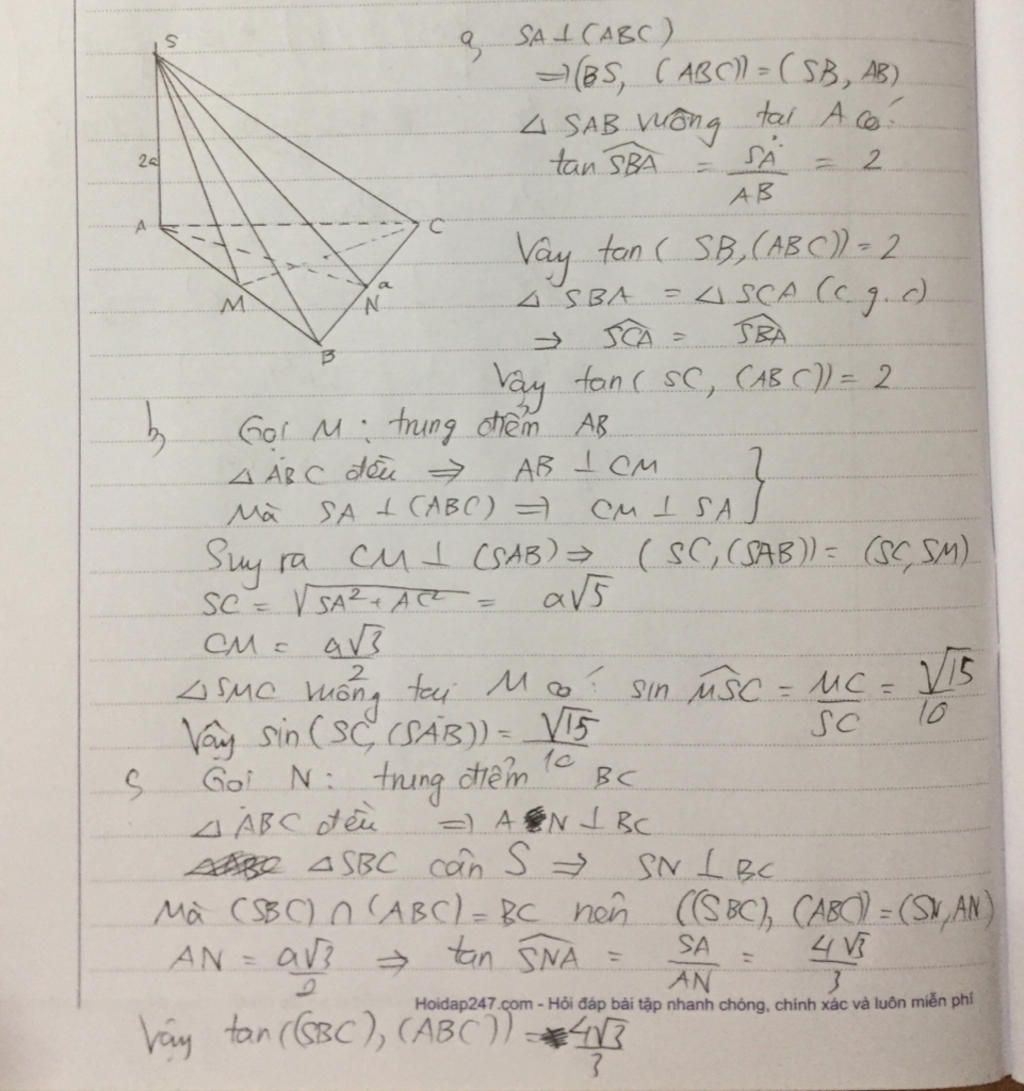 S
2a
A
C
M
a
N
B
a, SA ⊥ (ABC)
⇒ (BS, (ABC)) = (SB, AB)
△ SAB vuông tại A có:
tan SBA = SA/AB = 2
Vậy tan( SB, (ABC)) = 2
△ SBA = △ SCA (c.g.c)
⇒ SCA = SBA
Vậy tan( SC, (ABC)) = 2
b, Gọi M : trung điểm AB
△ ABC đều ⇒ AB ⊥ CM
Mà SA ⊥ (ABC) ⇒ CM ⊥ SA }
Suy ra CM ⊥ (SAB) ⇒ (SC, (SAB)) = (SC, SM)
SC = √(SA² + AC²) = a√5
CM = a√3/2
△ SMC vuông tại M có: sin MSC = MC/SC = √15/10
Vậy sin(SC, (SAB)) = √15/10
c, Gọi N : trung điểm BC
△ ABC đều ⇒ AN ⊥ BC
△ SBC cân S ⇒ SN ⊥ BC
Mà (SBC) ∩ (ABC) = BC nên ((SBC), (ABC)) = (SN, AN)
AN = a√3/2 ⇒ tan SNA = SA/AN = 4√3/3
Hoidap247.com - Hỏi đáp bài tập nhanh chóng, chính xác và luôn miễn phí
Vậy tan((SBC), (ABC)) = 4√3/3